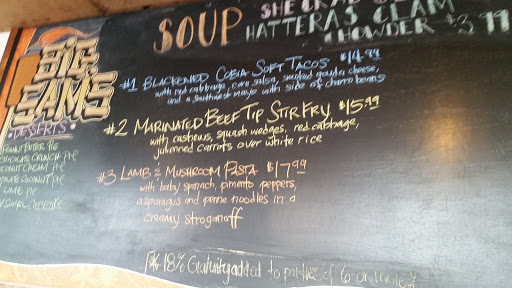 SOUP
SHE CRAB
HATTERAS CLAM
CHOWDER $3.99
BIG
SAMS
DESSERTS
#1 BLACKENED COBIA SOFT TACOS $14.99
with red cabbage, corn salsa, smoked gouda cheese,
and a southwest mayo with side of charro beans
#2 MARINATED BEEF TIP STIR FRY $15.99
with cashews, squash wedges, red cabbage,
julienned carrots over white rice
#3 LAMB & MUSHROOM PASTA $17.99
with baby spinach, pimento peppers,
asparagus and penne noodles in a
creamy stroganoff
PEANUT BUTTER PIE
CRUNCH PIE
COCONUT CREAM PIE
COCONUT PIE
LIME PIE
Cheesecake
18% Gratuity added to parties of 6 or more